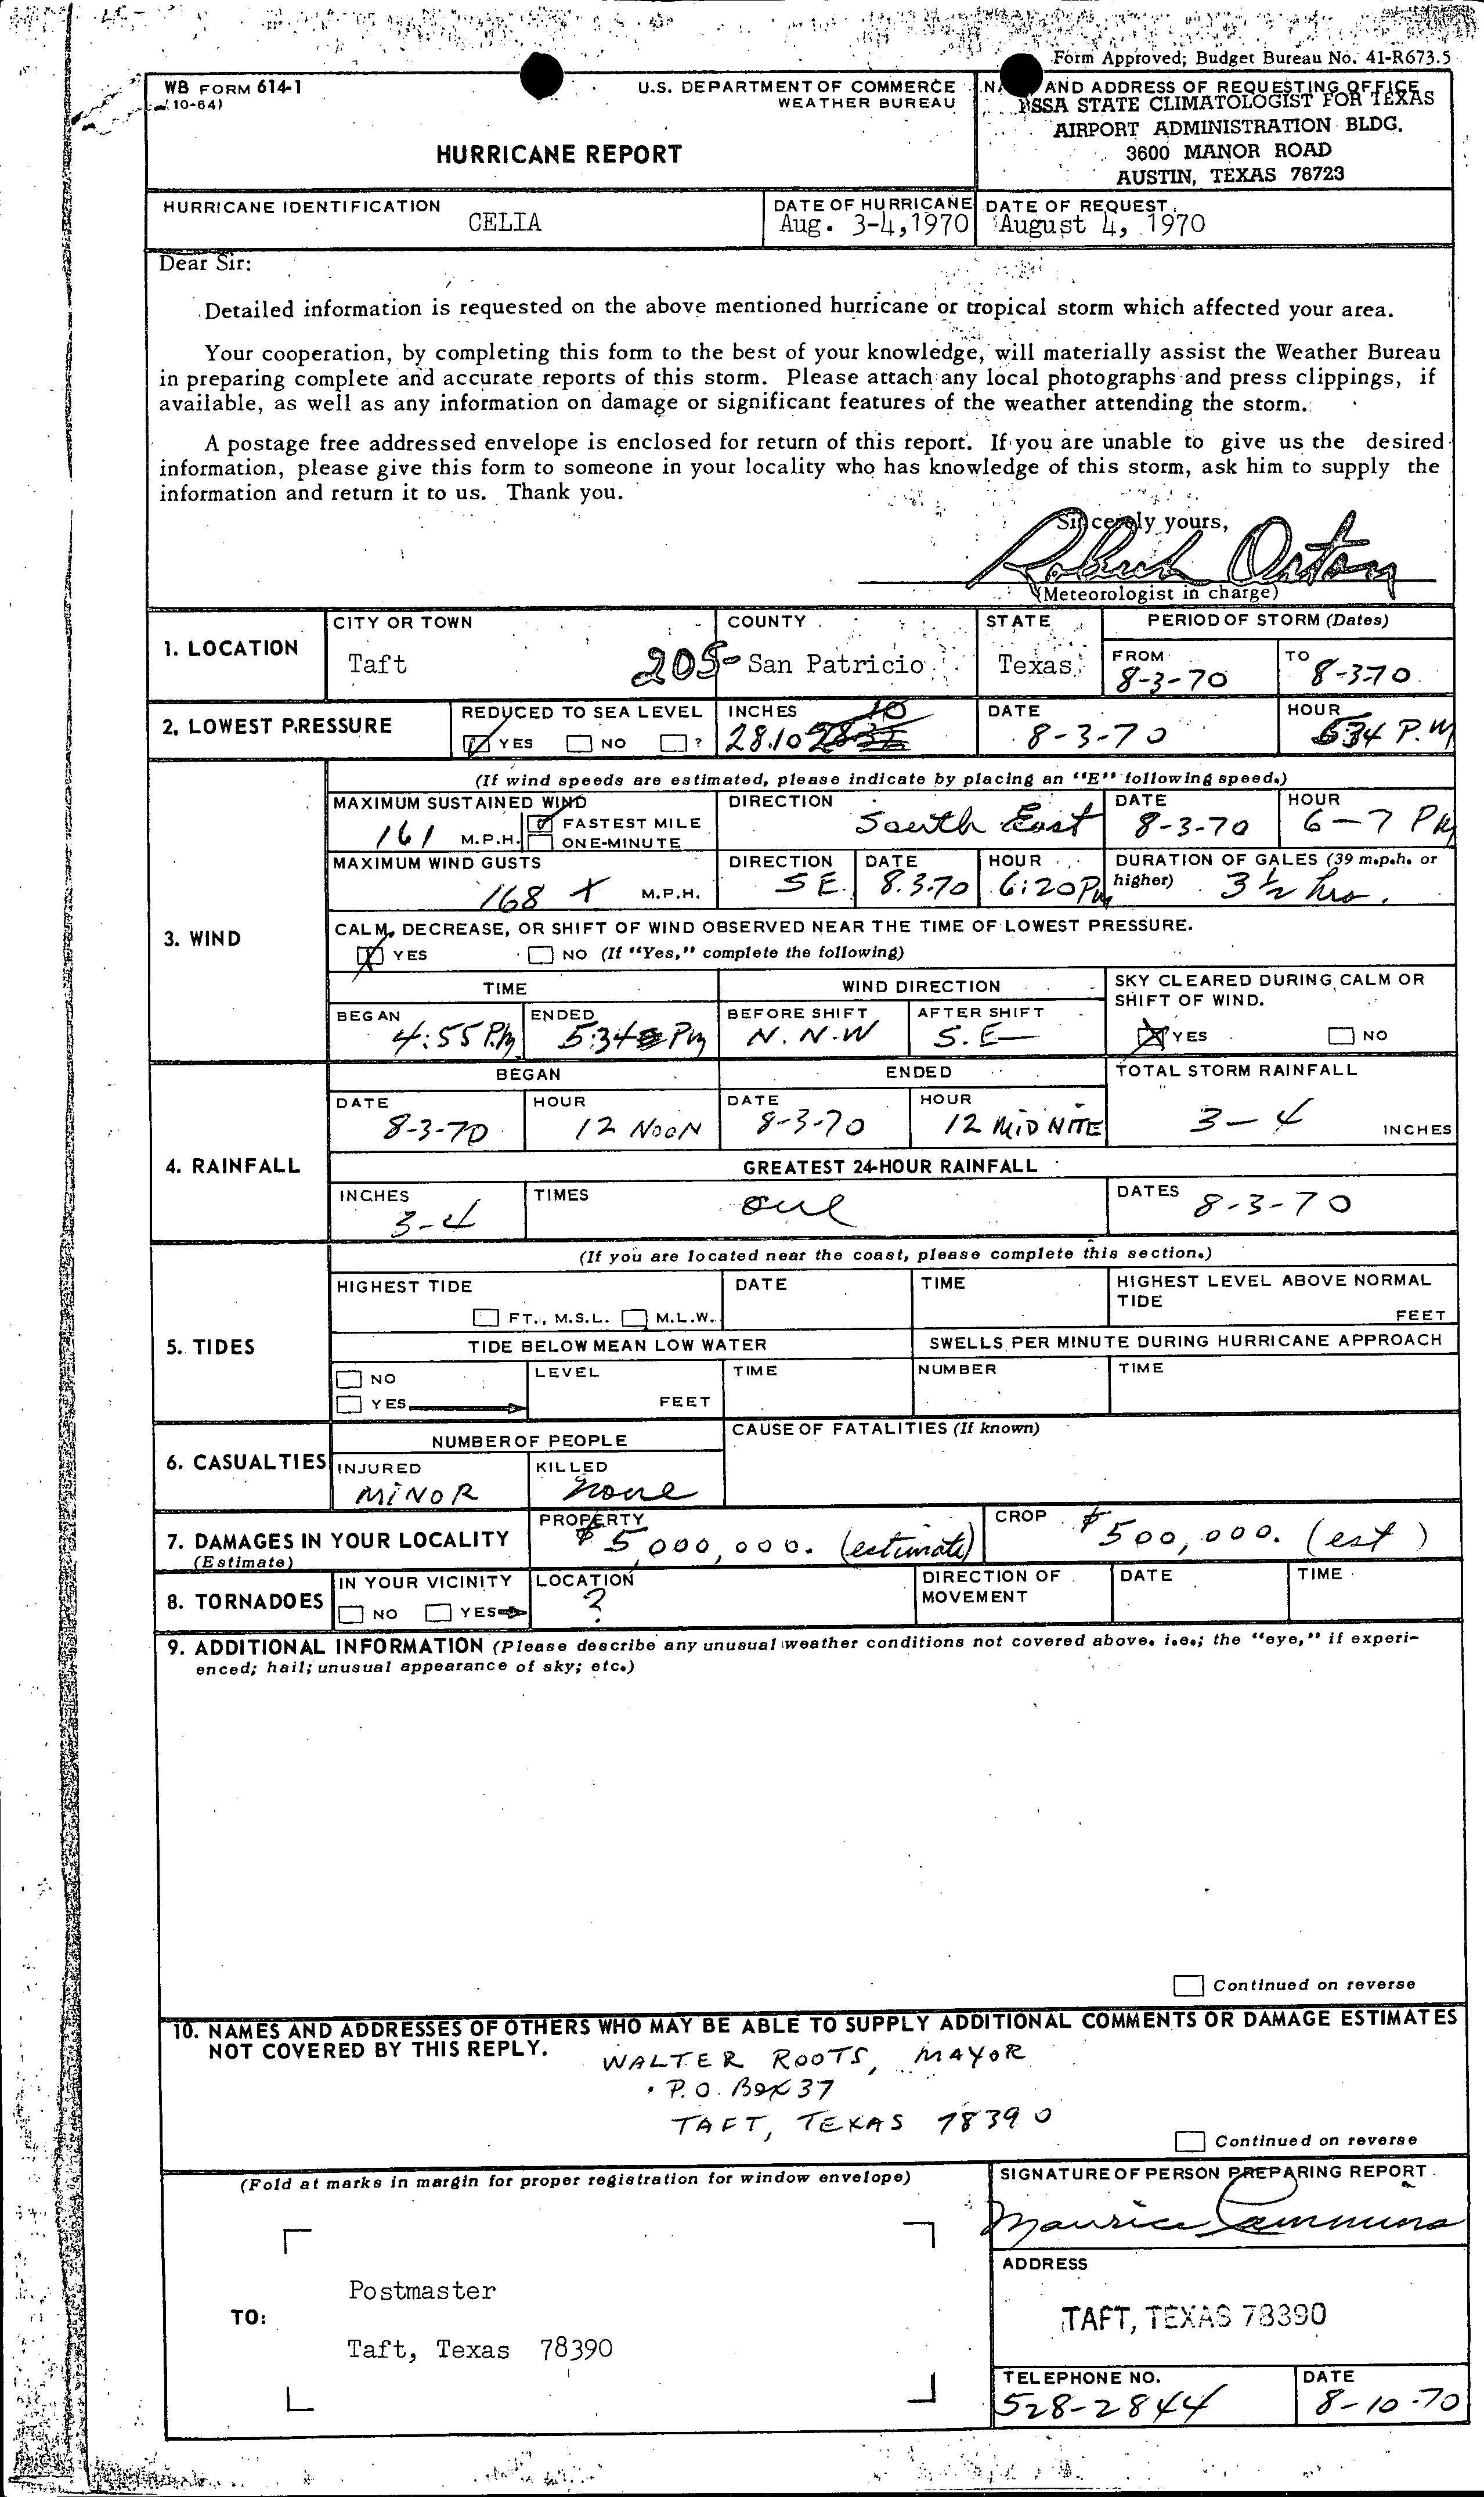 Form Approved; Budget Bureau No. 41-R673.5
WB FORM 614-1
(10-64)
U.S. DEPARTMENT OF COMMERCE
WEATHER BUREAU
HURRICANE REPORT
AND ADDRESS OF REQUESTING OFFICE
ESSA STATE CLIMATOLOGIST FOR TEXAS
AIRPORT ADMINISTRATION BLDG.
3600 MANOR ROAD
AUSTIN, TEXAS 78723
HURRICANE IDENTIFICATION
CELIA
DATE OF HURRICANE
Aug. 3-4,1970
DATE OF REQUEST
August 4, 1970
Dear Sir:
Detailed information is requested on the above mentioned hurricane or tropical storm which affected your area.
Your cooperation, by completing this form to the best of your knowledge, will materially assist the Weather Bureau
in preparing complete and accurate reports of this storm. Please attach any local photographs and press clippings, if
available, as well as any information on damage or significant features of the weather attending the storm.
A postage free addressed envelope is enclosed for return of this report. If you are unable to give us the desired
information, please give this form to someone in your locality who has knowledge of this storm, ask him to supply the
information and return it to us. Thank you.
Sincerely yours,
Robert Orton
(Meteorologist in charge)
1. LOCATION
CITY OR TOWN
Taft
205-
COUNTY
San Patricio
STATE
Texas
PERIOD OF STORM (Dates)
FROM
8-3-70
TO
8-3-70
2. LOWEST PRESSURE
REDUCED TO SEA LEVEL
YES NO ?
INCHES
28.10
10
DATE
8-3-70
HOUR
534 P.M
3. WIND
(If wind speeds are estimated, please indicate by placing an "E" following speed.)
MAXIMUM SUSTAINED WIND
161 M.P.H.
FASTEST MILE
ONE-MINUTE
DIRECTION
South East
DATE
8-3-70
HOUR
6-7 PM
MAXIMUM WIND GUSTS
168 + M.P.H.
DIRECTION
SE.
DATE
8.3.70
HOUR
6:20 PM
DURATION OF GALES (39 m.p.h. or
higher)
3 1/2 hrs.
CALM, DECREASE, OR SHIFT OF WIND OBSERVED NEAR THE TIME OF LOWEST PRESSURE.
YES NO (If "Yes," complete the following)
TIME
WIND DIRECTION
SKY CLEARED DURING CALM OR
SHIFT OF WIND.
YES NO
BEGAN
4:55 P.M.
ENDED
5:34 PM
BEFORE SHIFT
N.N.W
AFTER SHIFT
S.E
4. RAINFALL
BEGAN
ENDED
TOTAL STORM RAINFALL
3-4 INCHES
DATE
8-3-70
HOUR
12 NOON
DATE
8-3-70
HOUR
12 MIDNITE
GREATEST 24-HOUR RAINFALL
INCHES
3-4
TIMES
one
DATES
8-3-70
5. TIDES
(If you are located near the coast, please complete this section.)
HIGHEST TIDE
FT., M.S.L. M.L.W.
DATE
TIME
HIGHEST LEVEL ABOVE NORMAL
TIDE
FEET
TIDE BELOW MEAN LOW WATER
SWELLS PER MINUTE DURING HURRICANE APPROACH
NO
YES
LEVEL
FEET
TIME
NUMBER
TIME
6. CASUALTIES
NUMBER OF PEOPLE
INJURED
MINOR
KILLED
none
CAUSE OF FATALITIES (If known)
7. DAMAGES IN YOUR LOCALITY
(Estimate)
PROPERTY
$5,000,000. (estimate)
CROP
$500,000. (est)
8. TORNADOES
IN YOUR VICINITY
NO YES
LOCATION
?
DIRECTION OF
MOVEMENT
DATE
TIME
9. ADDITIONAL INFORMATION (Please describe any unusual weather conditions not covered above. i.e.; the "eye," if experi-
enced; hail; unusual appearance of sky; etc.)
Continued on reverse
10. NAMES AND ADDRESSES OF OTHERS WHO MAY BE ABLE TO SUPPLY ADDITIONAL COMMENTS OR DAMAGE ESTIMATES
NOT COVERED BY THIS REPLY.
WALTER ROOTS, MAYOR
P.O. BOX 37
TAFT, TEXAS 78390
Continued on reverse
(Fold at marks in margin for proper registration for window envelope)
TO:
Postmaster
Taft, Texas 78390
SIGNATURE OF PERSON PREPARING REPORT
Maurice Cummins
ADDRESS
TAFT, TEXAS 78390
TELEPHONE NO.
528-2844
DATE
8-10-70